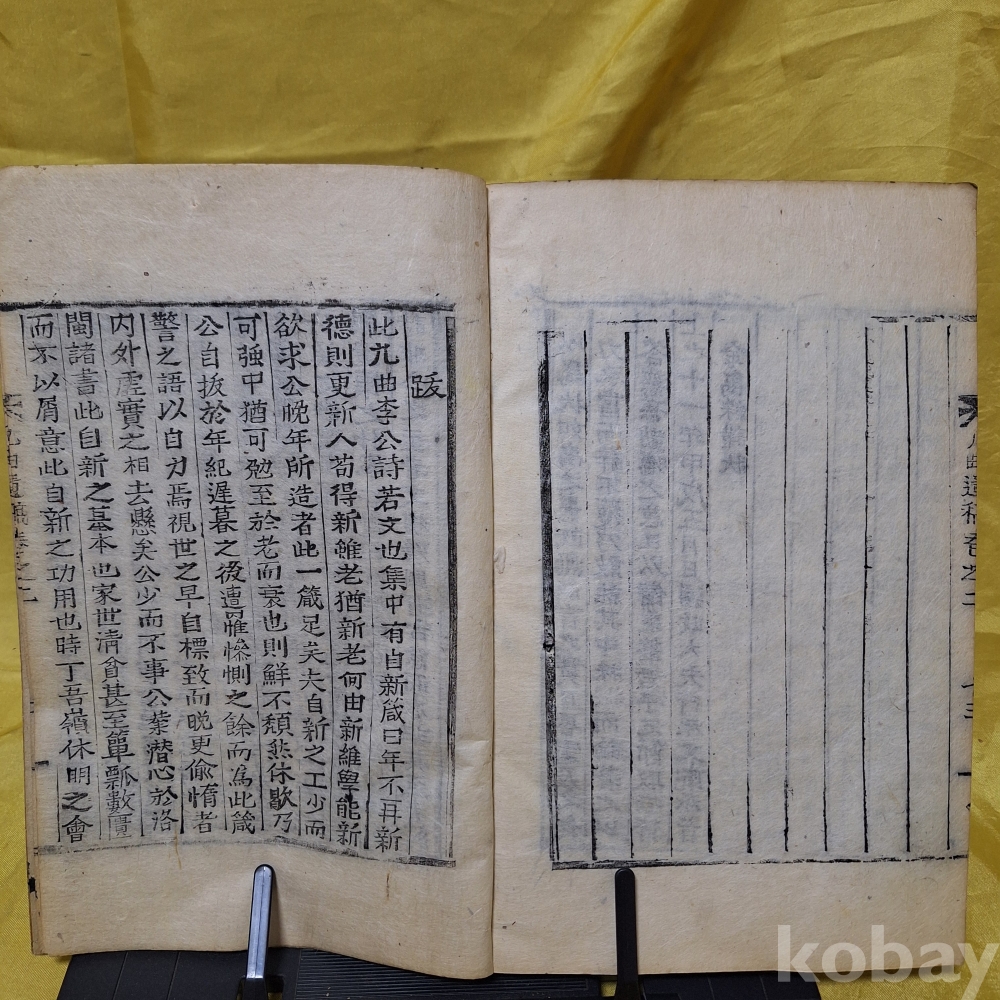 跋
此九曲李公詩若文也集中有自新箴曰年不再新
德則更新人苟得新雖老猶新老何由新維學能新
欲求公晚年所造者此一箴足矣夫自新之工少而
可強中猶可勉至於老而衰也則鮮不頹然休歇乃
公自拔於年紀遲暮之後遭罹慘惻之餘而爲此箴
警之語以自力焉視世之早自標致而晩更偸惰者
内外虛實之相去懸矣公少而不事公業潛心於洛
閩諸書此自新之基本也家世淸貧甚至簞瓢數匱
而不以屑意此自新之功用也時丁吾嶺休明之會
九曲遺稿卷之二
九曲遺稿卷之二 十三
kobay